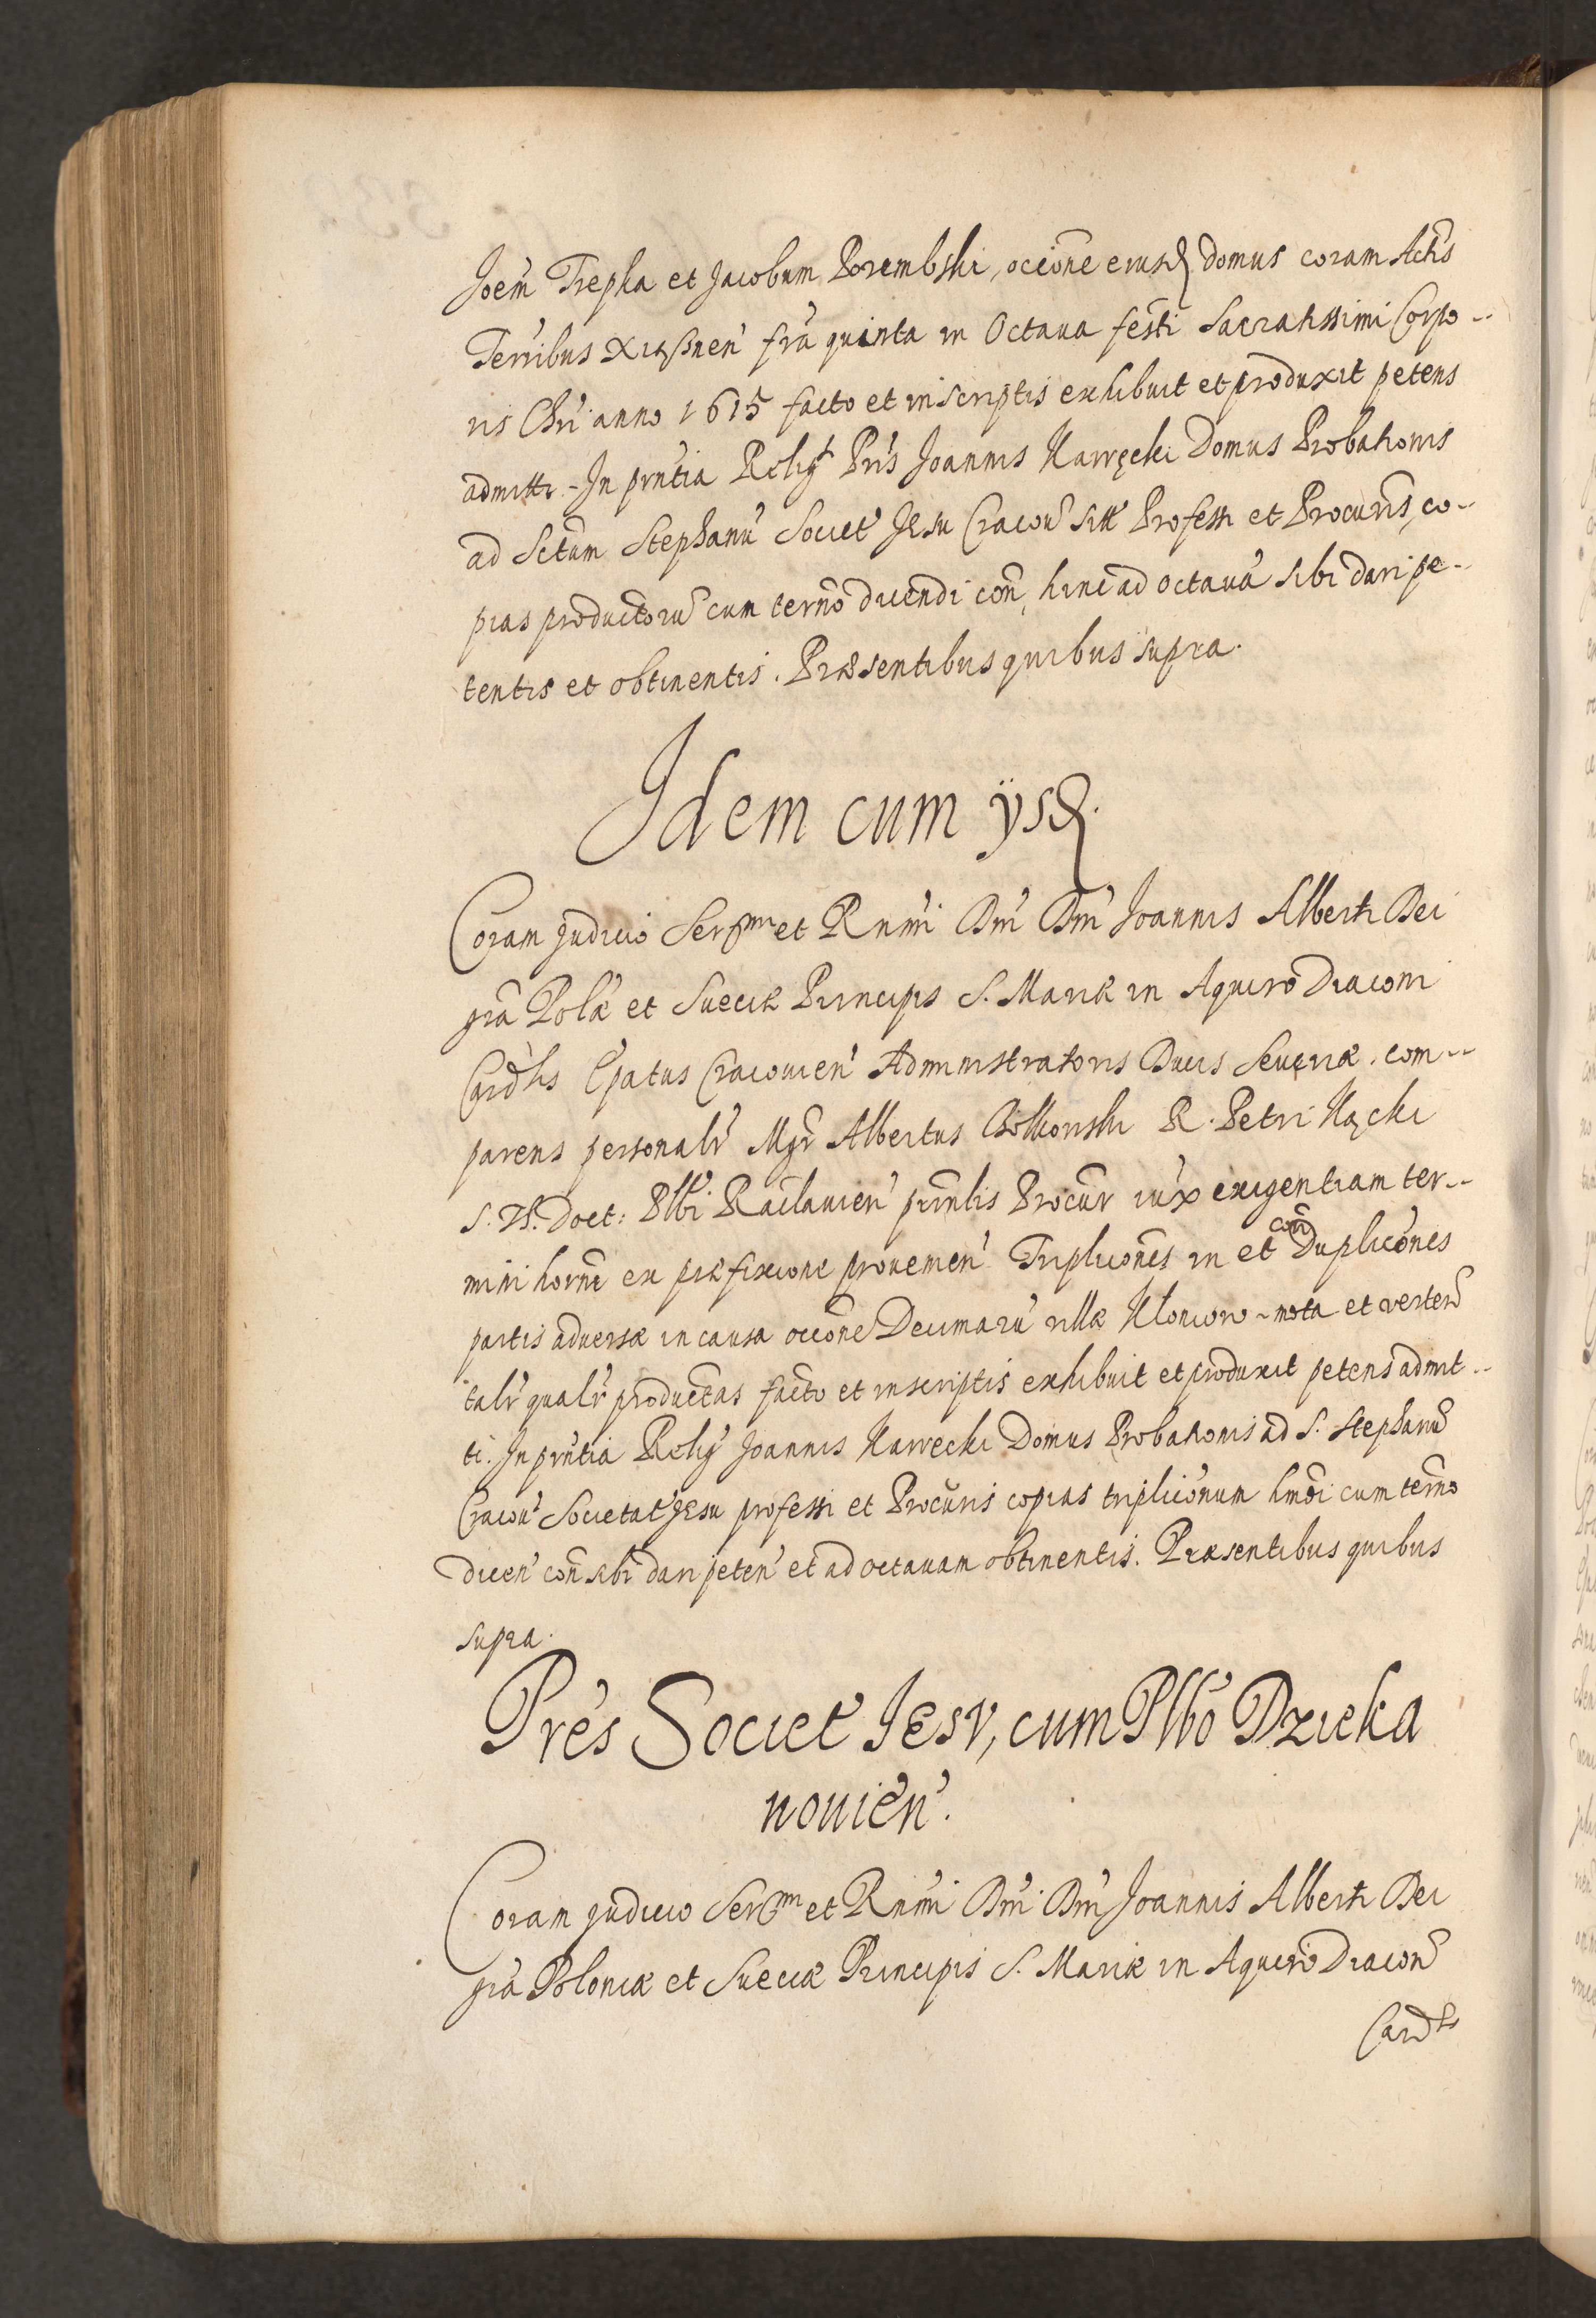 Joem̃ Trepka et Jacobum Porembski, occione eiusd domus coram Actis
Terribus Xiąsnen' fr̃a quinta in Octaua festi Sacratissimi Corpo--
ris Chri anno 1615 facto et in scriptis exhibuit et produxit petens
admitti - In prñtia Relig Pris Joannis Nawręcki Domus Probationis
ad Sctum Stephanũ Societ Jesu Cracou Professi et Procuris, co--
pias productorũ cum termo dicendi con, hinc ad octauã sibi dari pe--
tentis et obtinentis. Præsentibus quibus supra.
Idem cum ÿsd.
Coram judicio Ser^mi et Rnm̃i Dni Dni Joannis Alberti Dei
gr̃a Polæ et Sueciæ Principis S. Mariæ in Aquiro Diaconi
Cardlis Ep̃atus Cracouien' Administratoris Ducis Seueriæ. com--
parens personalr Mgr Albertus R. Petri
S. Th. Doct: Plbi Raclauien' prinlis Procur iux exigentiam ter--
mini horni ex præfixione prouenien' Triplicones in et con Duplicones
partis aduersæ in causa occone Decimarũ villæ Kłonow - mota et verten
talr qualr productas facto et in scriptis exhibuit et produxit petens admit--
ti. In prñtia Relig Joannis Nawrecki Domus Probationis ad S. Stephanũ
Cracou Societat Jesu professi et Procuris copias tripliconum hmoi cum termo
dicen' con sibi dari peten' et ad octauam obtinentis. Præsentibus quibus
supra.
Pres Societ Jesv, cum Plbo Dzieka
nouien'.
Coram judicio Ser^mi et Rnm̃i Dni Dni Joannis Alberti Dei
gr̃a Poloniæ et Sueciæ Principis S. Mariæ in Aquiro Diacon
Cardlis